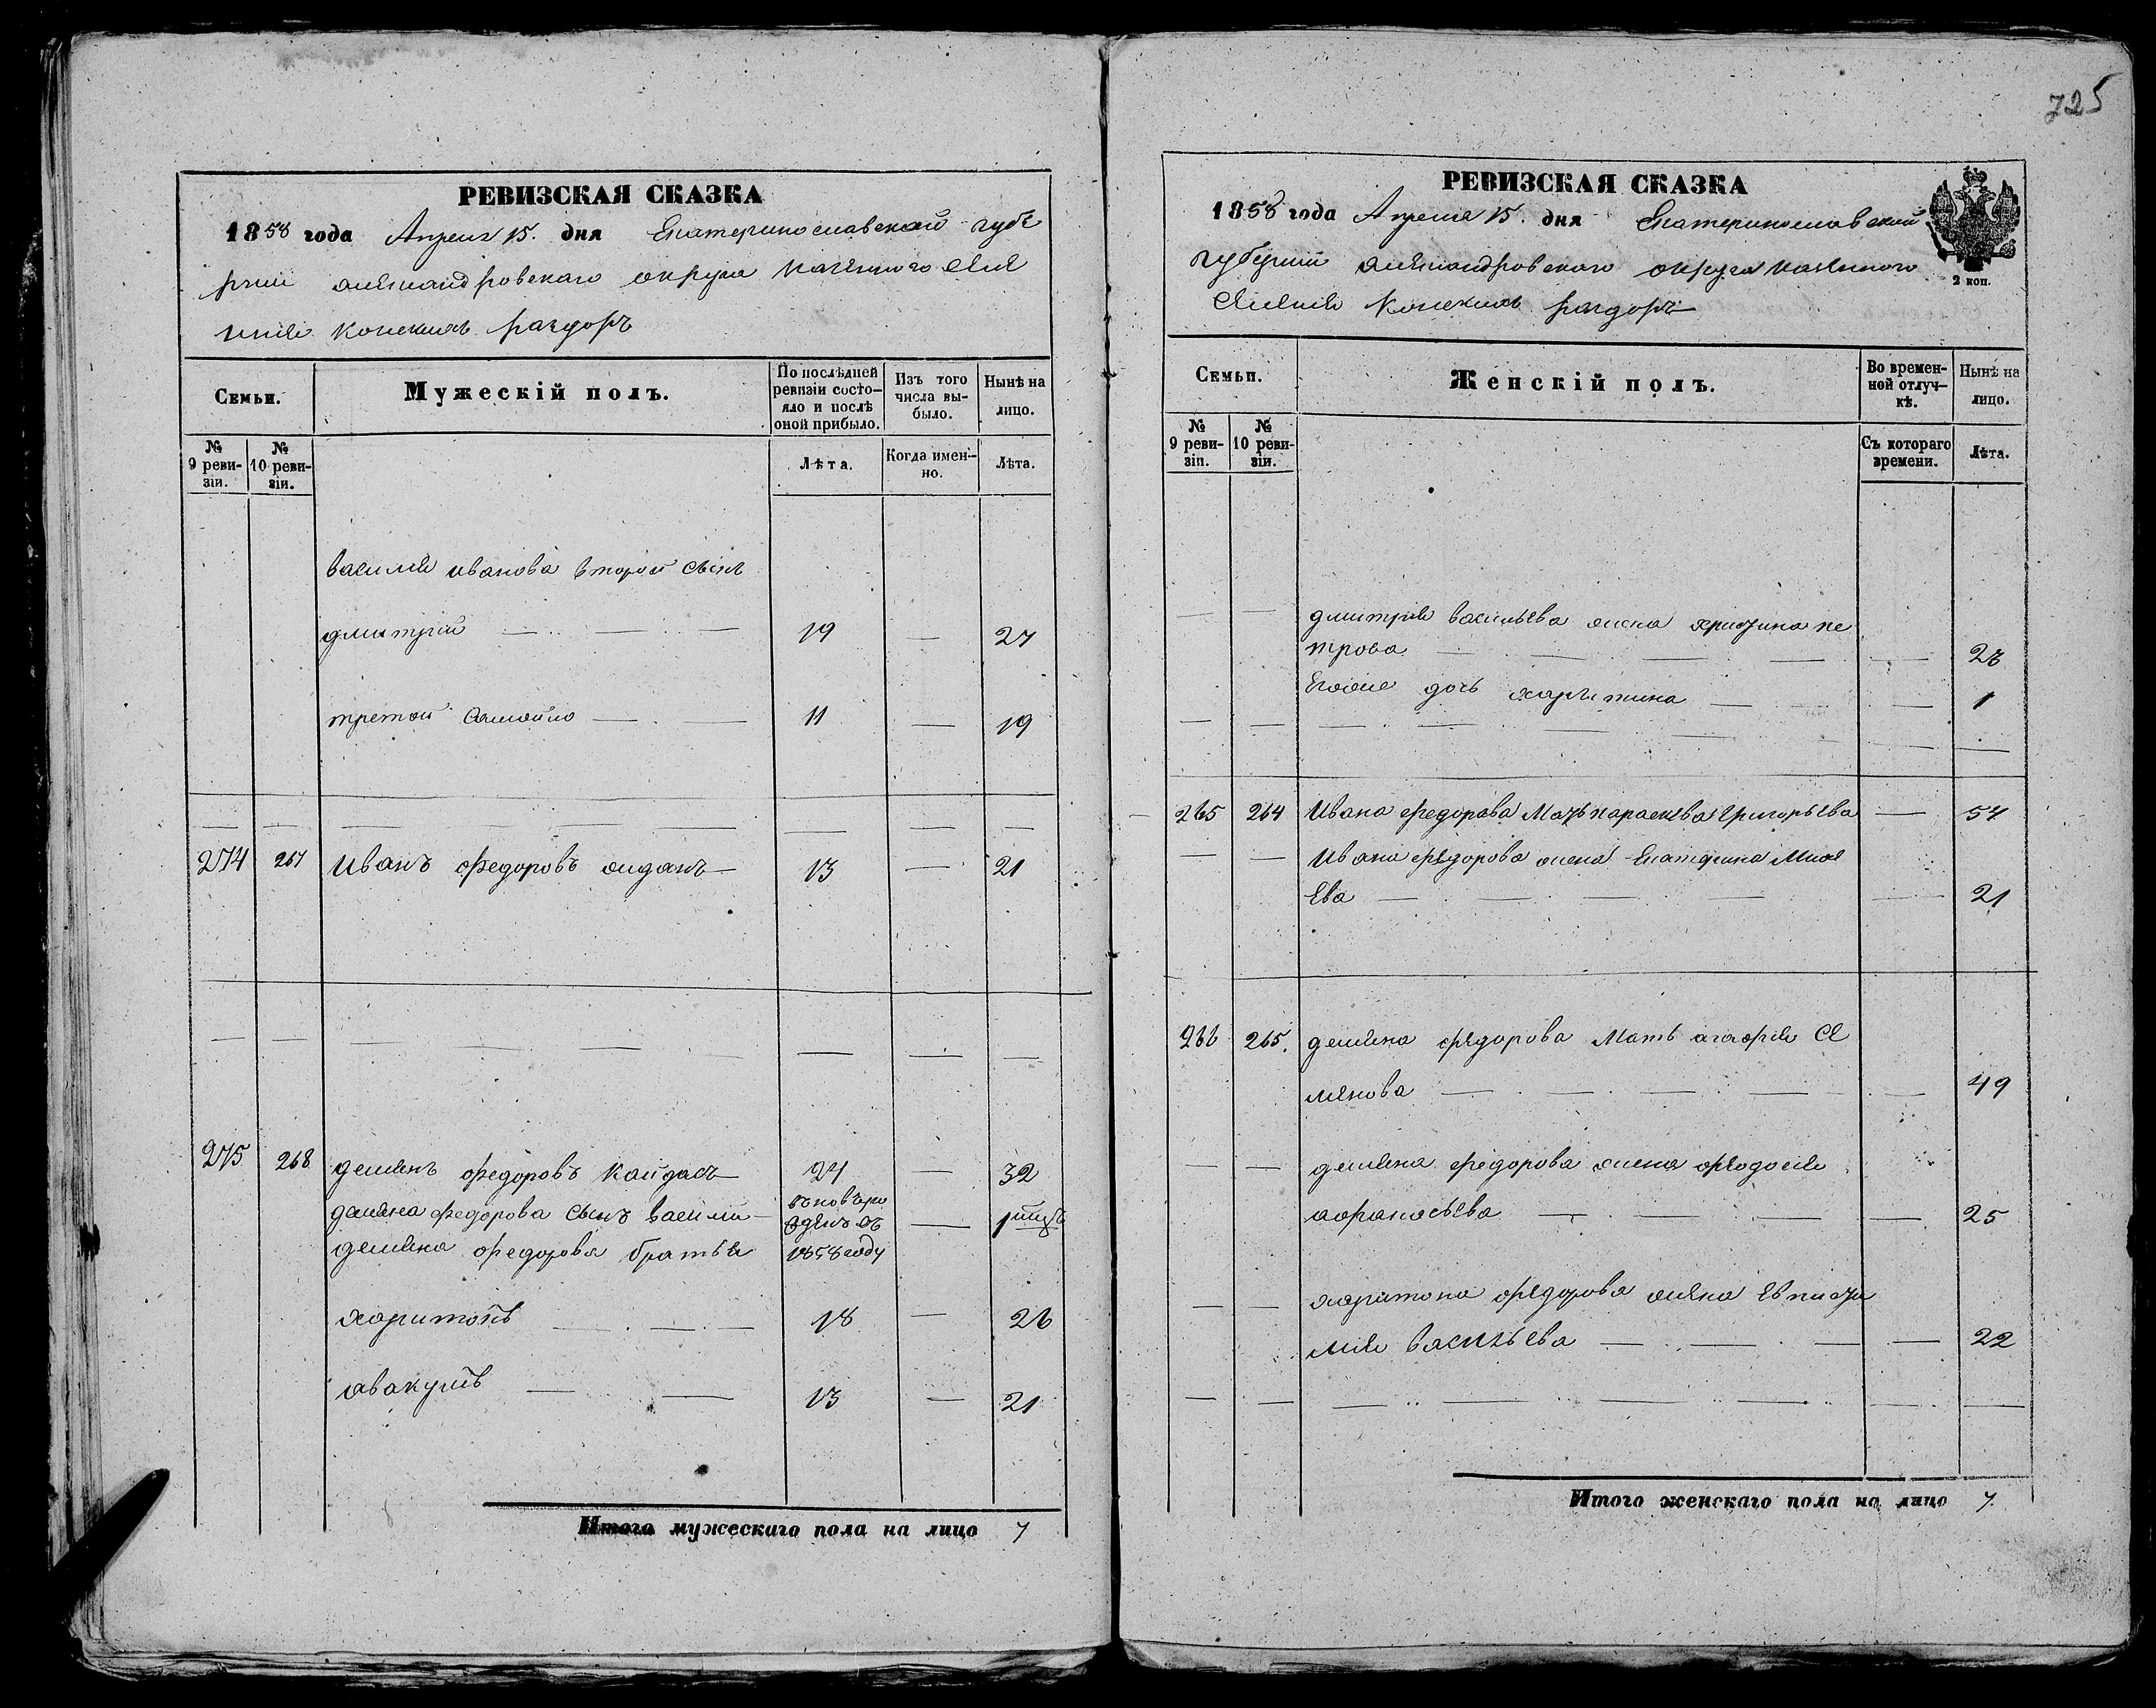 725
РЕВИЗСКАЯ СКАЗКА
1858 года Апреля 15. дня Екатеринославской губе
рнии александровскаго округа казенного селе
ния конскихъ раздоръ
Семьи.
Мужескій полъ.
По послѣдней ревизіи состо-
яло и послѣ
оной прибыло.
Изъ того
числа вы-
было.
Нынѣ на
лицо.
№
9 реви-
зіи.
№
10 реви-
зіи.
Лѣта.
Когда имен-
но.
Лѣта.
василия иванова второй сынъ
дмитрий 19 — 27
третой Самойло 11 — 19
274 267 иванъ федоровъ 13 — 21
275 268 демянъ федоровъ Кайдашъ 24 — 32
демяна федорова сынъ васили
1858 году
демяна федорова братья
харитонъ 18 — 26
авакумъ 13 — 21
Итого мужескаго пола на лицо 7
РЕВИЗСКАЯ СКАЗКА
1858 года Апреля 15. дня Екатеринославской
губернии александровскаго округа казенного
селения Конскихъ раздоръ
2 коп.
Семьи.
Женскій полъ.
Во времен-
ной отлуч-
кѣ.
Нынѣ на
лицо.
№
9 реви-
зіи.
№
10 реви-
зіи.
Съ котораго
времени.
Лѣта.
дмитрия васильева жена христина пе
трова
Егоже дочь харитина — 1
265 264 Ивана федорова мать параскева григорьева — 54
Ивана федорова жена Екатерина
Ева — 21
266 265. демяна федорова мать агафия се
менова — 49
демяна федорова жена феодосия
афанасьева — 25
харитона федорова жена
мия васильева — 22
Итого женскаго пола на лицо 7